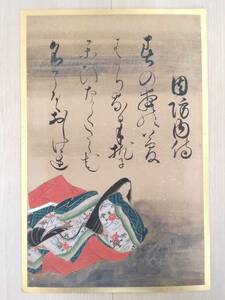 周防内侍
春の夜の夢
はかりなる手枕に
かひなくたゝむ
名こそおしけれ